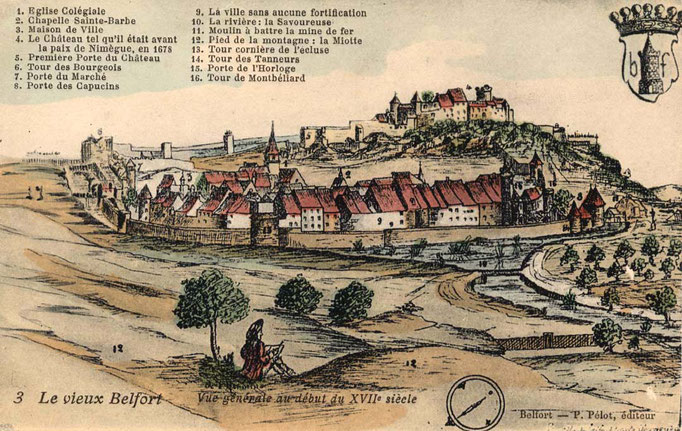 1. Eglise Colégiale
2. Chapelle Sainte-Barbe
3. Maison de Ville
4. Le Château tel qu'il était avant
la paix de Nimègue, en 1678
5. Première Porte du Château
6. Tour des Bourgeois
7. Porte du Marché
8. Porte des Capucins
9. La ville sans aucune fortification
10. La rivière : la Savoureuse
11. Moulin à battre la mine de fer
12. Pied de la montagne : la Miotte
13. Tour cornière de l'écluse
14. Tour des Tanneurs
15. Porte de l'Horloge
16. Tour de Montbéliard
b f
12
12
3 Le vieux Belfort - Vue générale au début du XVIIe siècle
Belfort — P. Pélot, éditeur